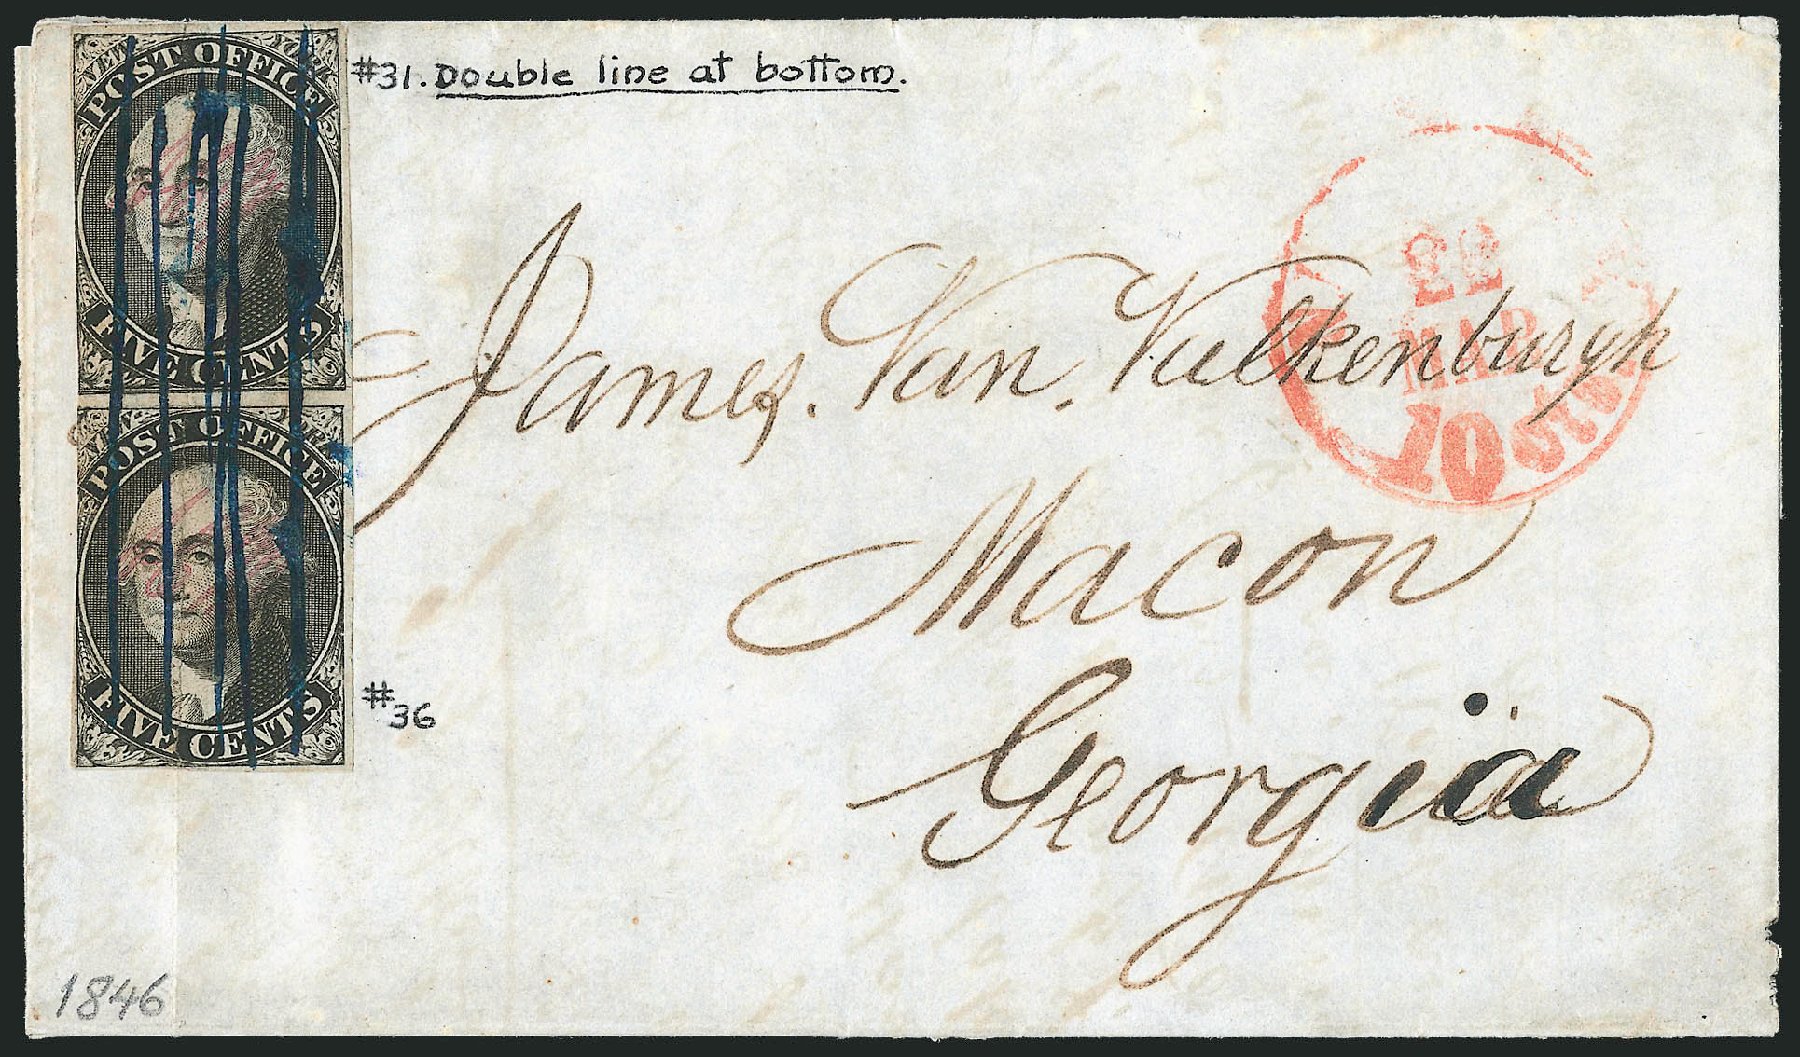 NEW YORK
POST OFFICE
FIVE CENTS
#31. Double line at bottom.
POST OFFICE
FIVE CENTS
#36
James. Van. Valkenburgh
Macon
Georgia
MAR
10 cts
1846